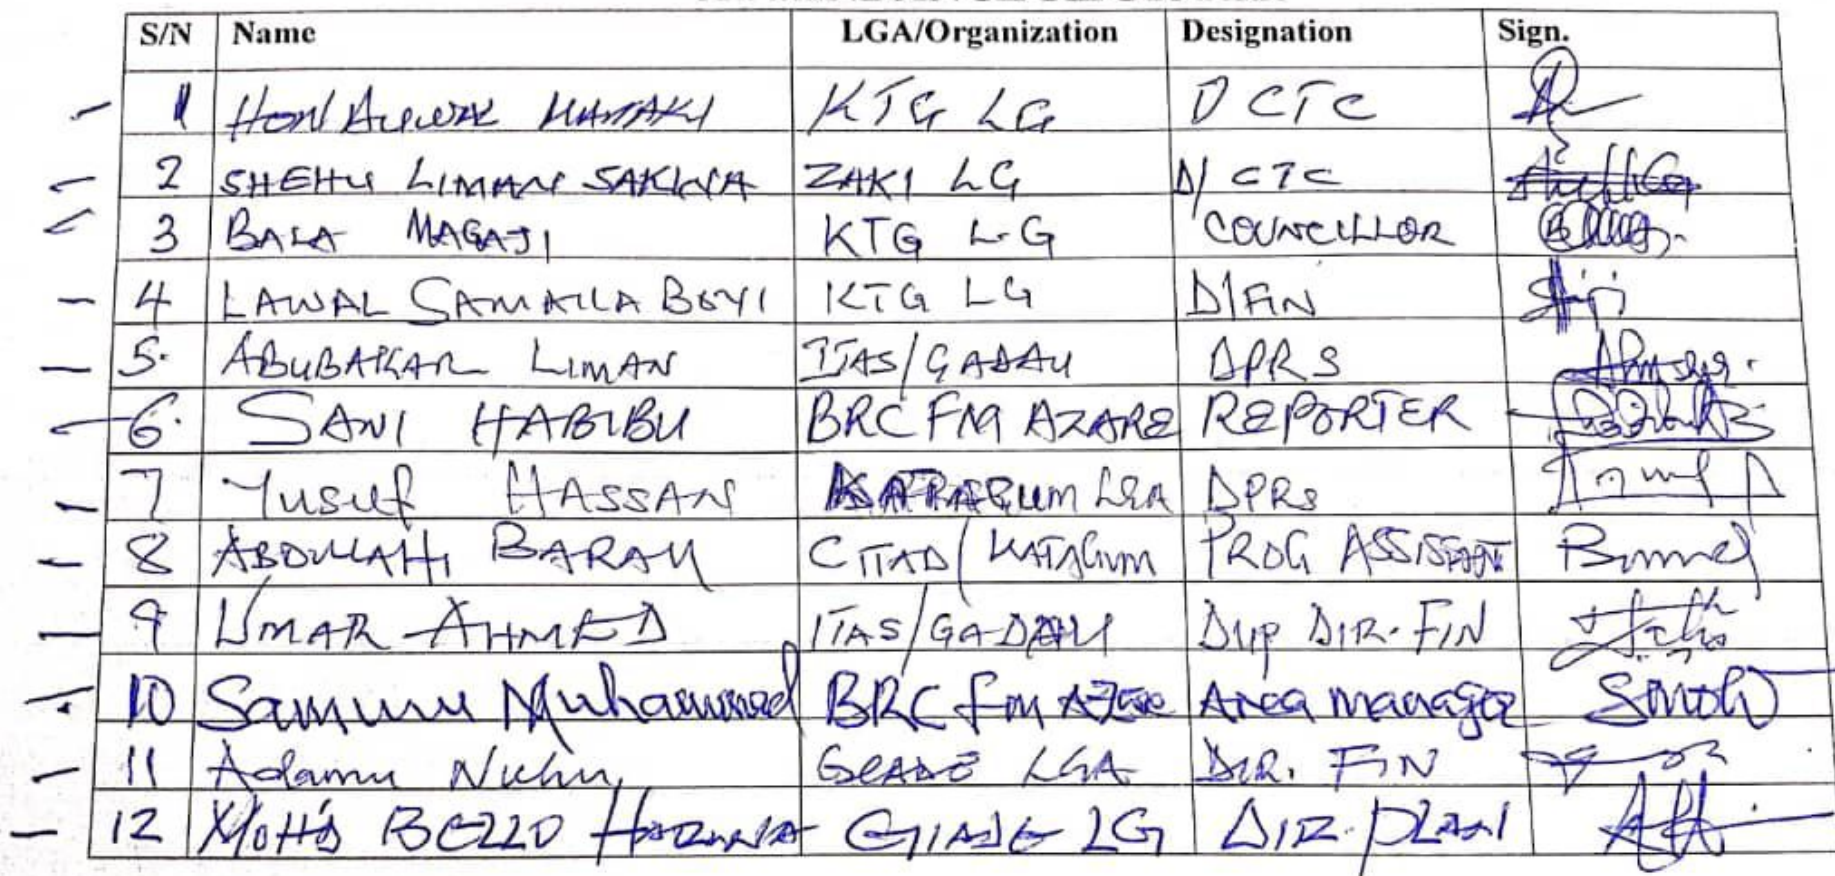 S/N Name LGA/Organization Designation Sign.
1 HON KTG LG DCTC
2 SHEHU LIMAN SAKWA ZAKI LG D/CTC
3 BALA MAGAJI KTG L.G COUNCILLOR
4 LAWAL SAMAILA BOYI KTG LG D/FIN
5. ABUBAKAR LIMAN ITAS/GADAU DPRS
6. SANI HABIBU BRC FM AZARE REPORTER
7 Yusuf HASSAN LGA DPRS
8 ABDULLAHI BARAU CITAD/KATAGUM PROG ASSISTANT
9 UMAR AHMED ITAS/GADAU DIR. FIN
10 Muhammad BRC fm Azare Area manager
11 Adamu Nuhu LGA DIR. FIN
12 MOH'D BELLO HARUNA GIADE LG DIR. PLAN